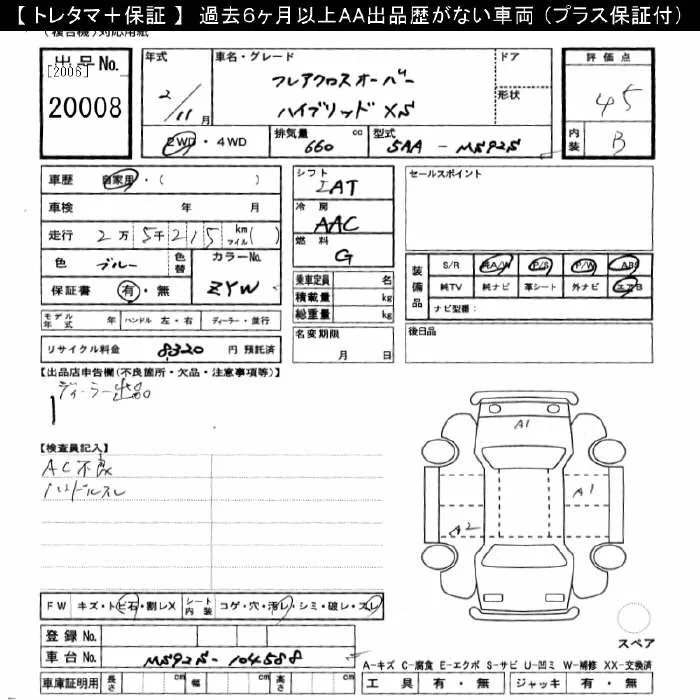 【 トレタマ＋保証 】 過去６ヶ月以上ＡＡ出品歴がない車両 （プラス保証付）
（複合機）対応用紙
出品No.
[2006]
20008
年式
2/11月
車名・グレード
フレアクロスオーバー
ハイブリッド XS
ドア
形状
評価点
4.5
内装
B
2WD・4WD
排気量
660
cc
型式
5AA - MS92S
車歴 自家用・( )
車検 年 月
走行 2万 5千215 km マイル( )
色 ブルー 色替
カラーNo.
ZYW
保証書 有・無
モデル年式 年 ハンドル 左・右 ディーラー・並行
リサイクル料金 8,320 円 預託済
シフト
IAT
冷房
AAC
燃料
G
乗車定員 名
積載量 kg
総重量 kg
名変期限
月 日
セールスポイント
装備品
S/R 純A/W P/S P/W ABS
純TV 純ナビ 革シート 外ナビ エアB
ナビ型番：
後日品
【出品店申告欄(不良箇所・欠品・注意事項等)】
ディーラー出品
【検査員記入】
AC不良
ハンドルスレ
A1
A1
A2
FW キズ・トビ石・割レX シート内装 コゲ・穴・汚レ・シミ・破レ・スレ
登録No.
車台No. MS92S-104588
スペア
A-キズ C-腐食 E-エクボ S-サビ U-凹ミ W-補修 XX-交換済
車庫証明用 長さ cm 幅 cm 高さ cm
工具 有・無 ジャッキ 有・無